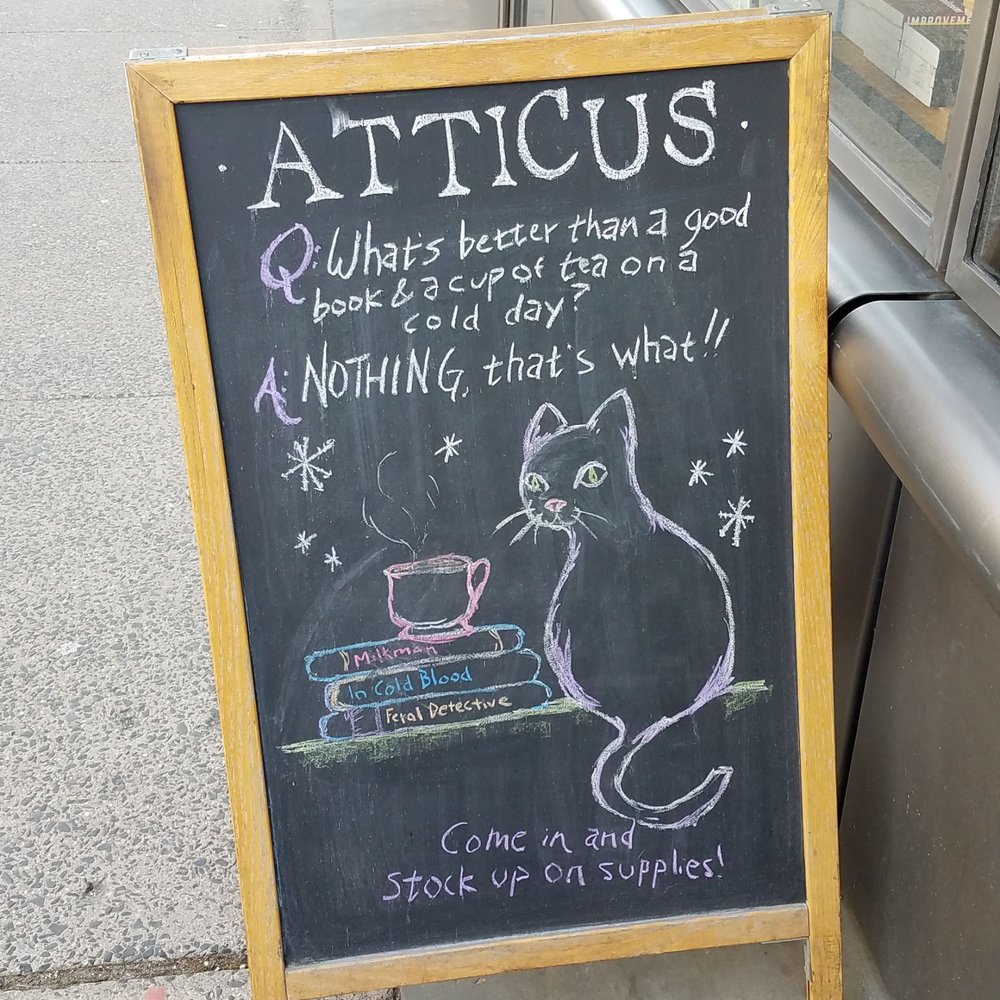 IMPROVEME
· ATTICUS ·
Q: What's better than a good
book & a cup of tea on a
cold day?
A: NOTHING, that's what!!
Milkman
In Cold Blood
Feral Detective
Come in and
stock up on supplies!